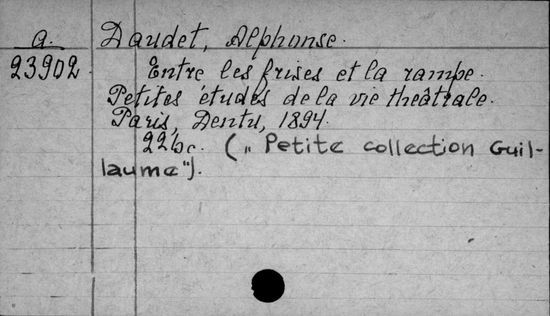 a. Daudet, Alphonse.
23902 Entre les frises et la rampe.
Petites études de la vie theâtrale.
Paris, Dentu, 1894.
22bc. („Petite collection Guil-
laume").